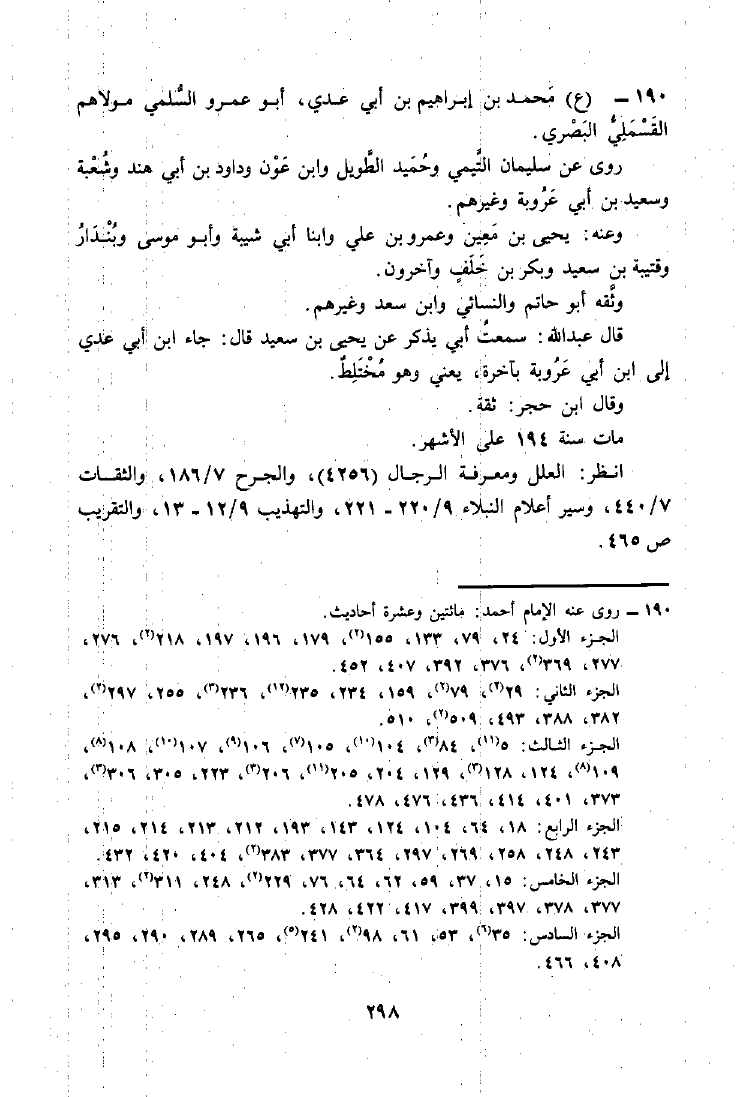 ١٩٠ ـ (ع) مَحمد بن إبراهيم بن أبي عدي، أبو عمرو السُّلمي مولاهم
القَسْمَلِيُّ البَصْري.
روى عن سليمان التَّيمي وحُمَيد الطَّويل وابن عَوْن وداود بن أبي هند وشُعْبة
وسعيد بن أبي عَرُوبة وغيرهم.
وعنه: يحيى بن مَعِين وعمرو بن علي وابنا أبي شيبة وأبو موسى وبُنْدَارُ
وقتيبة بن سعيد وبكر بن خَلَفٍ وآخرون.
وثَّقه أبو حاتم والنسائي وابن سعد وغيرهم.
قال عبدالله: سمعتُ أبي يذكر عن يحيى بن سعيد قال: جاء ابن أبي عدي
إلى ابن أبي عَرُوبة بآخرة، يعني وهو مُخْتَلِطٌ.
وقال ابن حجر: ثقة.
مات سنة ١٩٤ على الأشهر.
انظر: العلل ومعرفة الرجال (٤٢٥٦)، والجرح ١٨٦/٧، والثقات
٤٤٠/٧، وسير أعلام النبلاء ٢٢٠/٩ ـ ٢٢١، والتهذيب ١٢/٩ ـ ١٣، والتقريب
ص ٤٦٥.
١٩٠ ـ روى عنه الإمام أحمد: مائتين وعشرة أحاديث.
الجزء الأول: ٢٤، ٧٩، ١٣٣، ١٥٥(٢)، ١٧٩، ١٩٦، ١٩٧، ٢١٨(٢)، ٢٧٦،
٢٧٧، ٣٦٩(٢)، ٣٧٦، ٣٩٢، ٤٠٧، ٤٥٢.
الجزء الثاني: ٢٩(٢)، ٧٩(٢)، ١٥٩، ٢٣٤، ٢٣٥(١٢)، ٢٣٦(٣)، ٢٥٥، ٢٩٧(٢)،
٣٨٢، ٣٨٨، ٤٩٣، ٥٠٩(٢)، ٥١٠.
الجزء الثالث: ٥(١١)، ٨٤(٣)، ١٠٤(١٠)، ١٠٥(٧)، ١٠٦(٩)، ١٠٧(١٠)، ١٠٨(٨)،
١٠٩(٨)، ١٢٤، ١٢٨(٣)، ١٢٩، ٢٠٤، ٢٠٥(١١)، ٢٠٦(٣)، ٢٢٣، ٣٠٥، ٣٠٦(٣)،
٣٧٣، ٤٠١، ٤١٤، ٤٣٦، ٤٧٦، ٤٧٨.
الجزء الرابع: ١٨، ٦٤، ١٠٤، ١٢٤، ١٤٣، ١٩٣، ٢١٢، ٢١٣، ٢١٤، ٢١٥،
٢٤٣، ٢٤٨، ٢٥٨، ٢٦٩، ٢٩٧، ٣٦٤، ٣٧٧، ٣٨٣(٢)، ٤٠٤، ٤٢٠، ٤٣٢.
الجزء الخامس: ١٥، ٣٧، ٥٩، ٦٢، ٦٤، ٧٦، ٢٢٩(٢)، ٢٤٨، ٣١١(٢)، ٣١٣،
٣٧٧، ٣٧٨، ٣٩٧، ٣٩٩، ٤١٧، ٤٢٢، ٤٢٨.
الجزء السادس: ٣٥(٦)، ٥٣، ٦١، ٩٨(٢)، ٢٤١(٥)، ٢٦٥، ٢٨٩، ٢٩٠، ٢٩٥،
٤٠٨، ٤٦٦.
٢٩٨